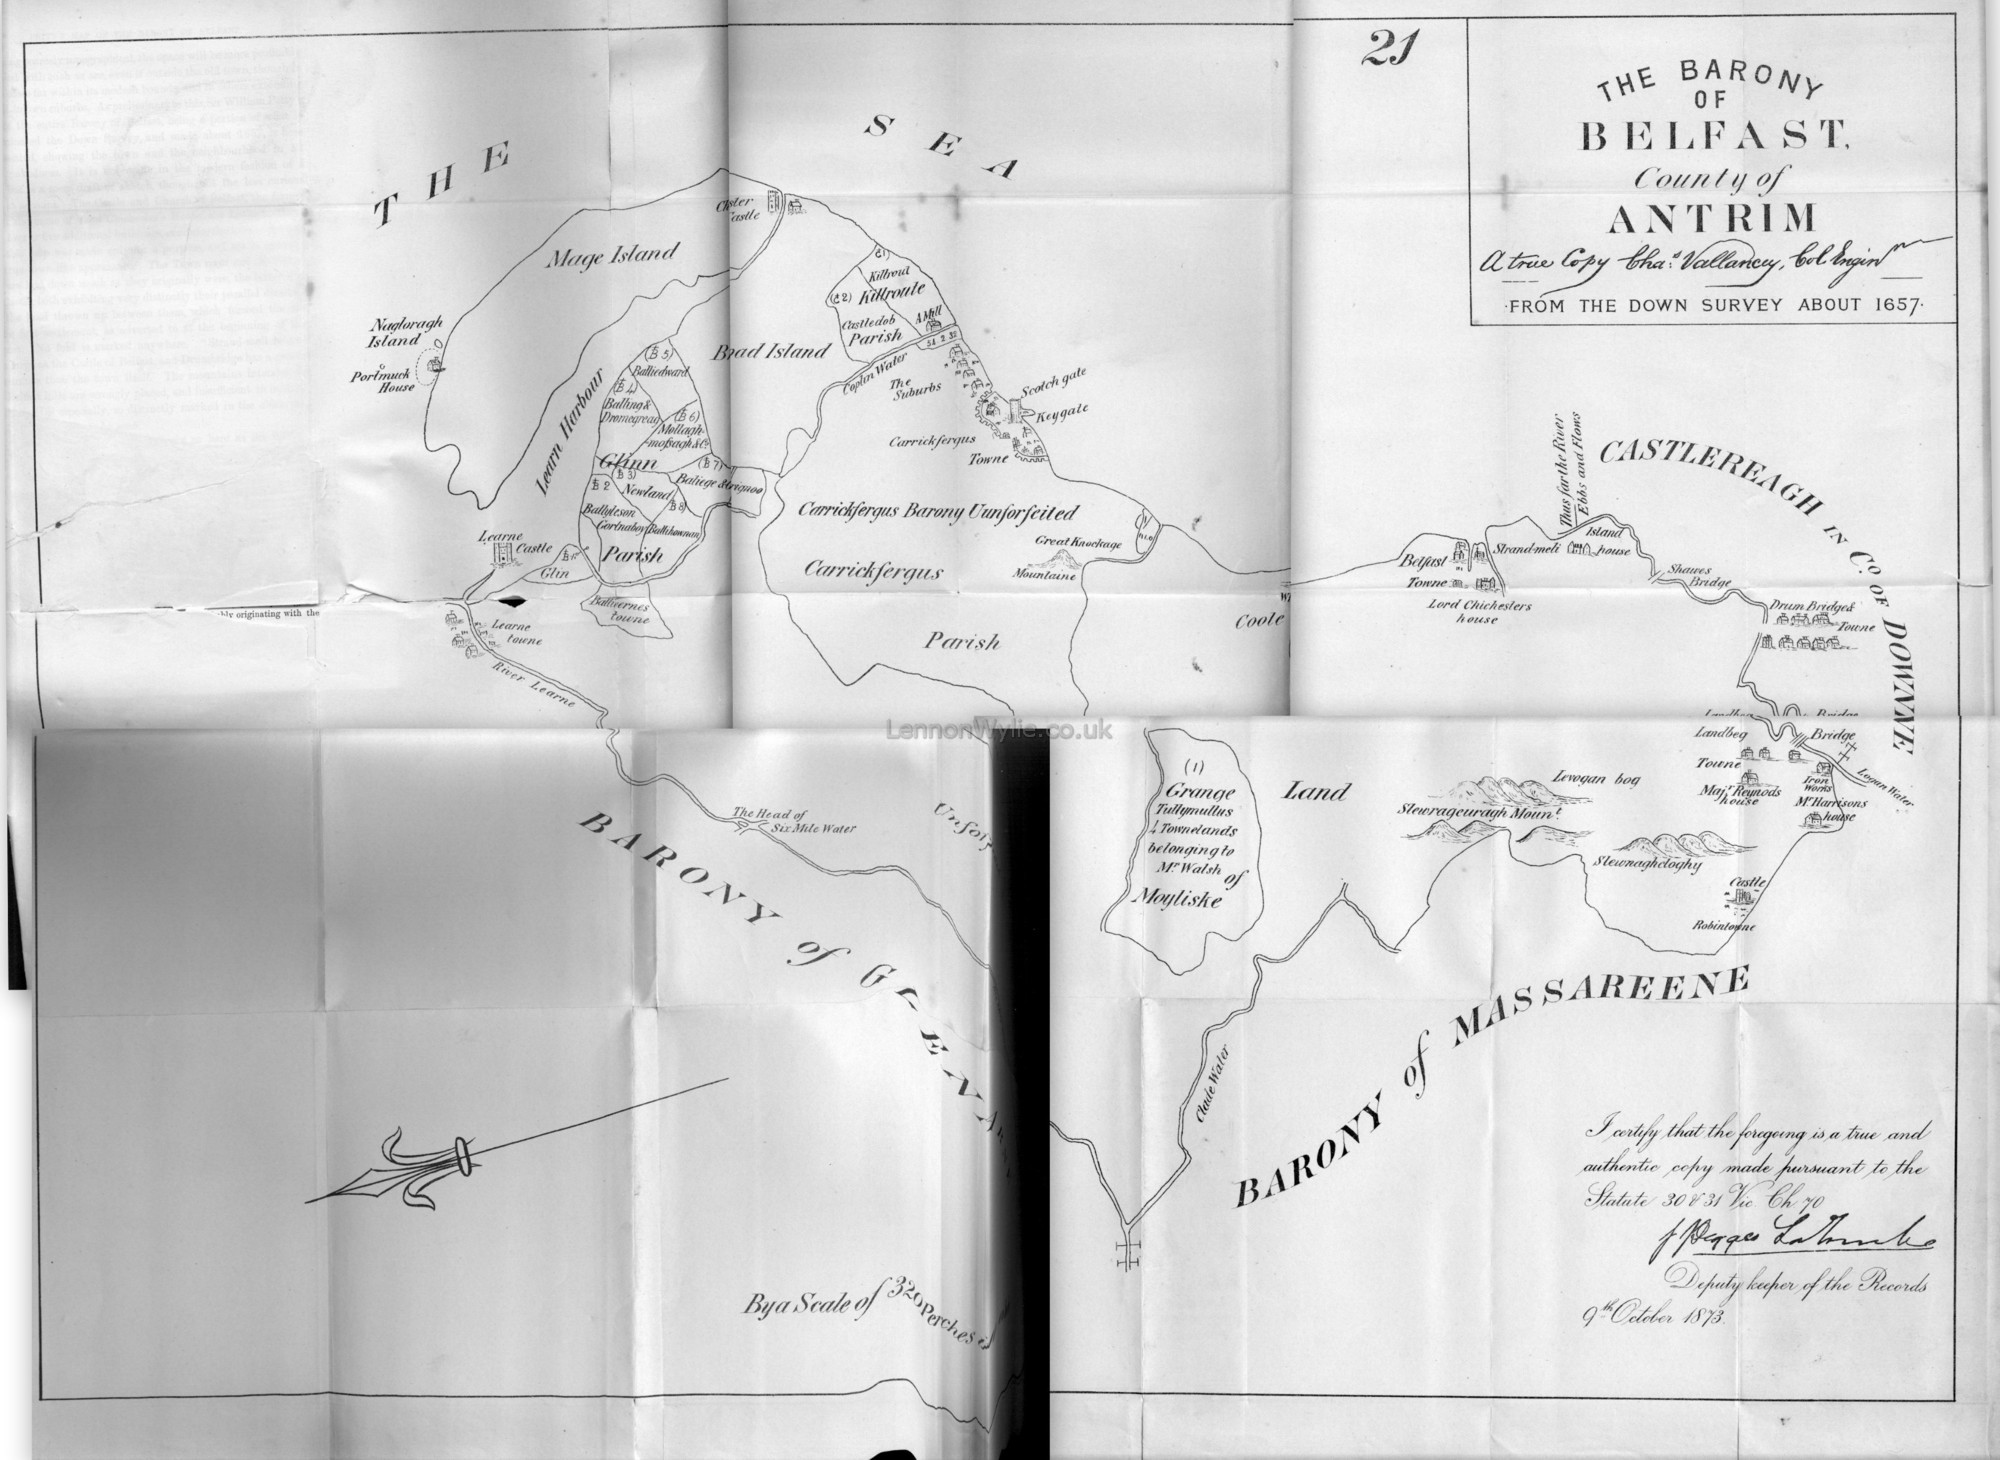 21
THE BARONY
OF
BELFAST,
County of
ANTRIM
A true Copy Chas. Vallancey, Col. Engin
FROM THE DOWN SURVEY ABOUT 1657.
THE SEA
Chster
Castle
Mage Island
Nagloragh
Island
Portmuck
House
Learn Harbour
Brad Island
(C1)
Killrout
(C2)
Killroute
Castledob
Parish
A Mill
Coplin Water
The
Suburbs
Scotch gate
Keygate
Carrickfergus
Towne
(B5)
Balliedward
(B4)
Balling &
Dromegreag
(B6)
Mollagh-
mossagh &c.
Glinn
(B7)
Baliege & trignoo
(B3)
B2
Newland
B8
Ballyleson
Gortnaboy
Ballihownan
Parish
Learne
Castle
Glin
Ballivernes
towne
Learne
towne
River Learne
Carrickfergus Barony Uunforfeited
Great Knockage
Mountaine
Carrickfergus
Parish
Coole
Belfast
Towne
Lord Chichesters
house
Strand-meli
Island
house
Thus far the River
Ebbs and Flows
CASTLEREAGH IN Co. OF DOWNE
Shawes
Bridge
Drum Bridge &
Towne
Landbeg
Bridge
Towne
Majr. Reynods
house
Iron
Works
Logan Water
Mr. Harrisons
house
Castle
Robintowne
LennonWylie.co.uk
bly originating with the
The Head of
Six Mile Water
BARONY of GLENAR
Unforf
(1)
Grange
Tullymullus
4 Townelands
belonging to
Mr. Walsh of
Moyliske
Land
Levogan bog
Slewrageuragh Mount.
Slewnaghcloghy
Clade Water
BARONY of MASSAREENE
By a Scale of 320 Perches
I certify that the foregoing is a true and
authentic copy made pursuant to the
Statute 30 & 31 Vic Ch 70
Deputy keeper of the Records
9th October 1873.